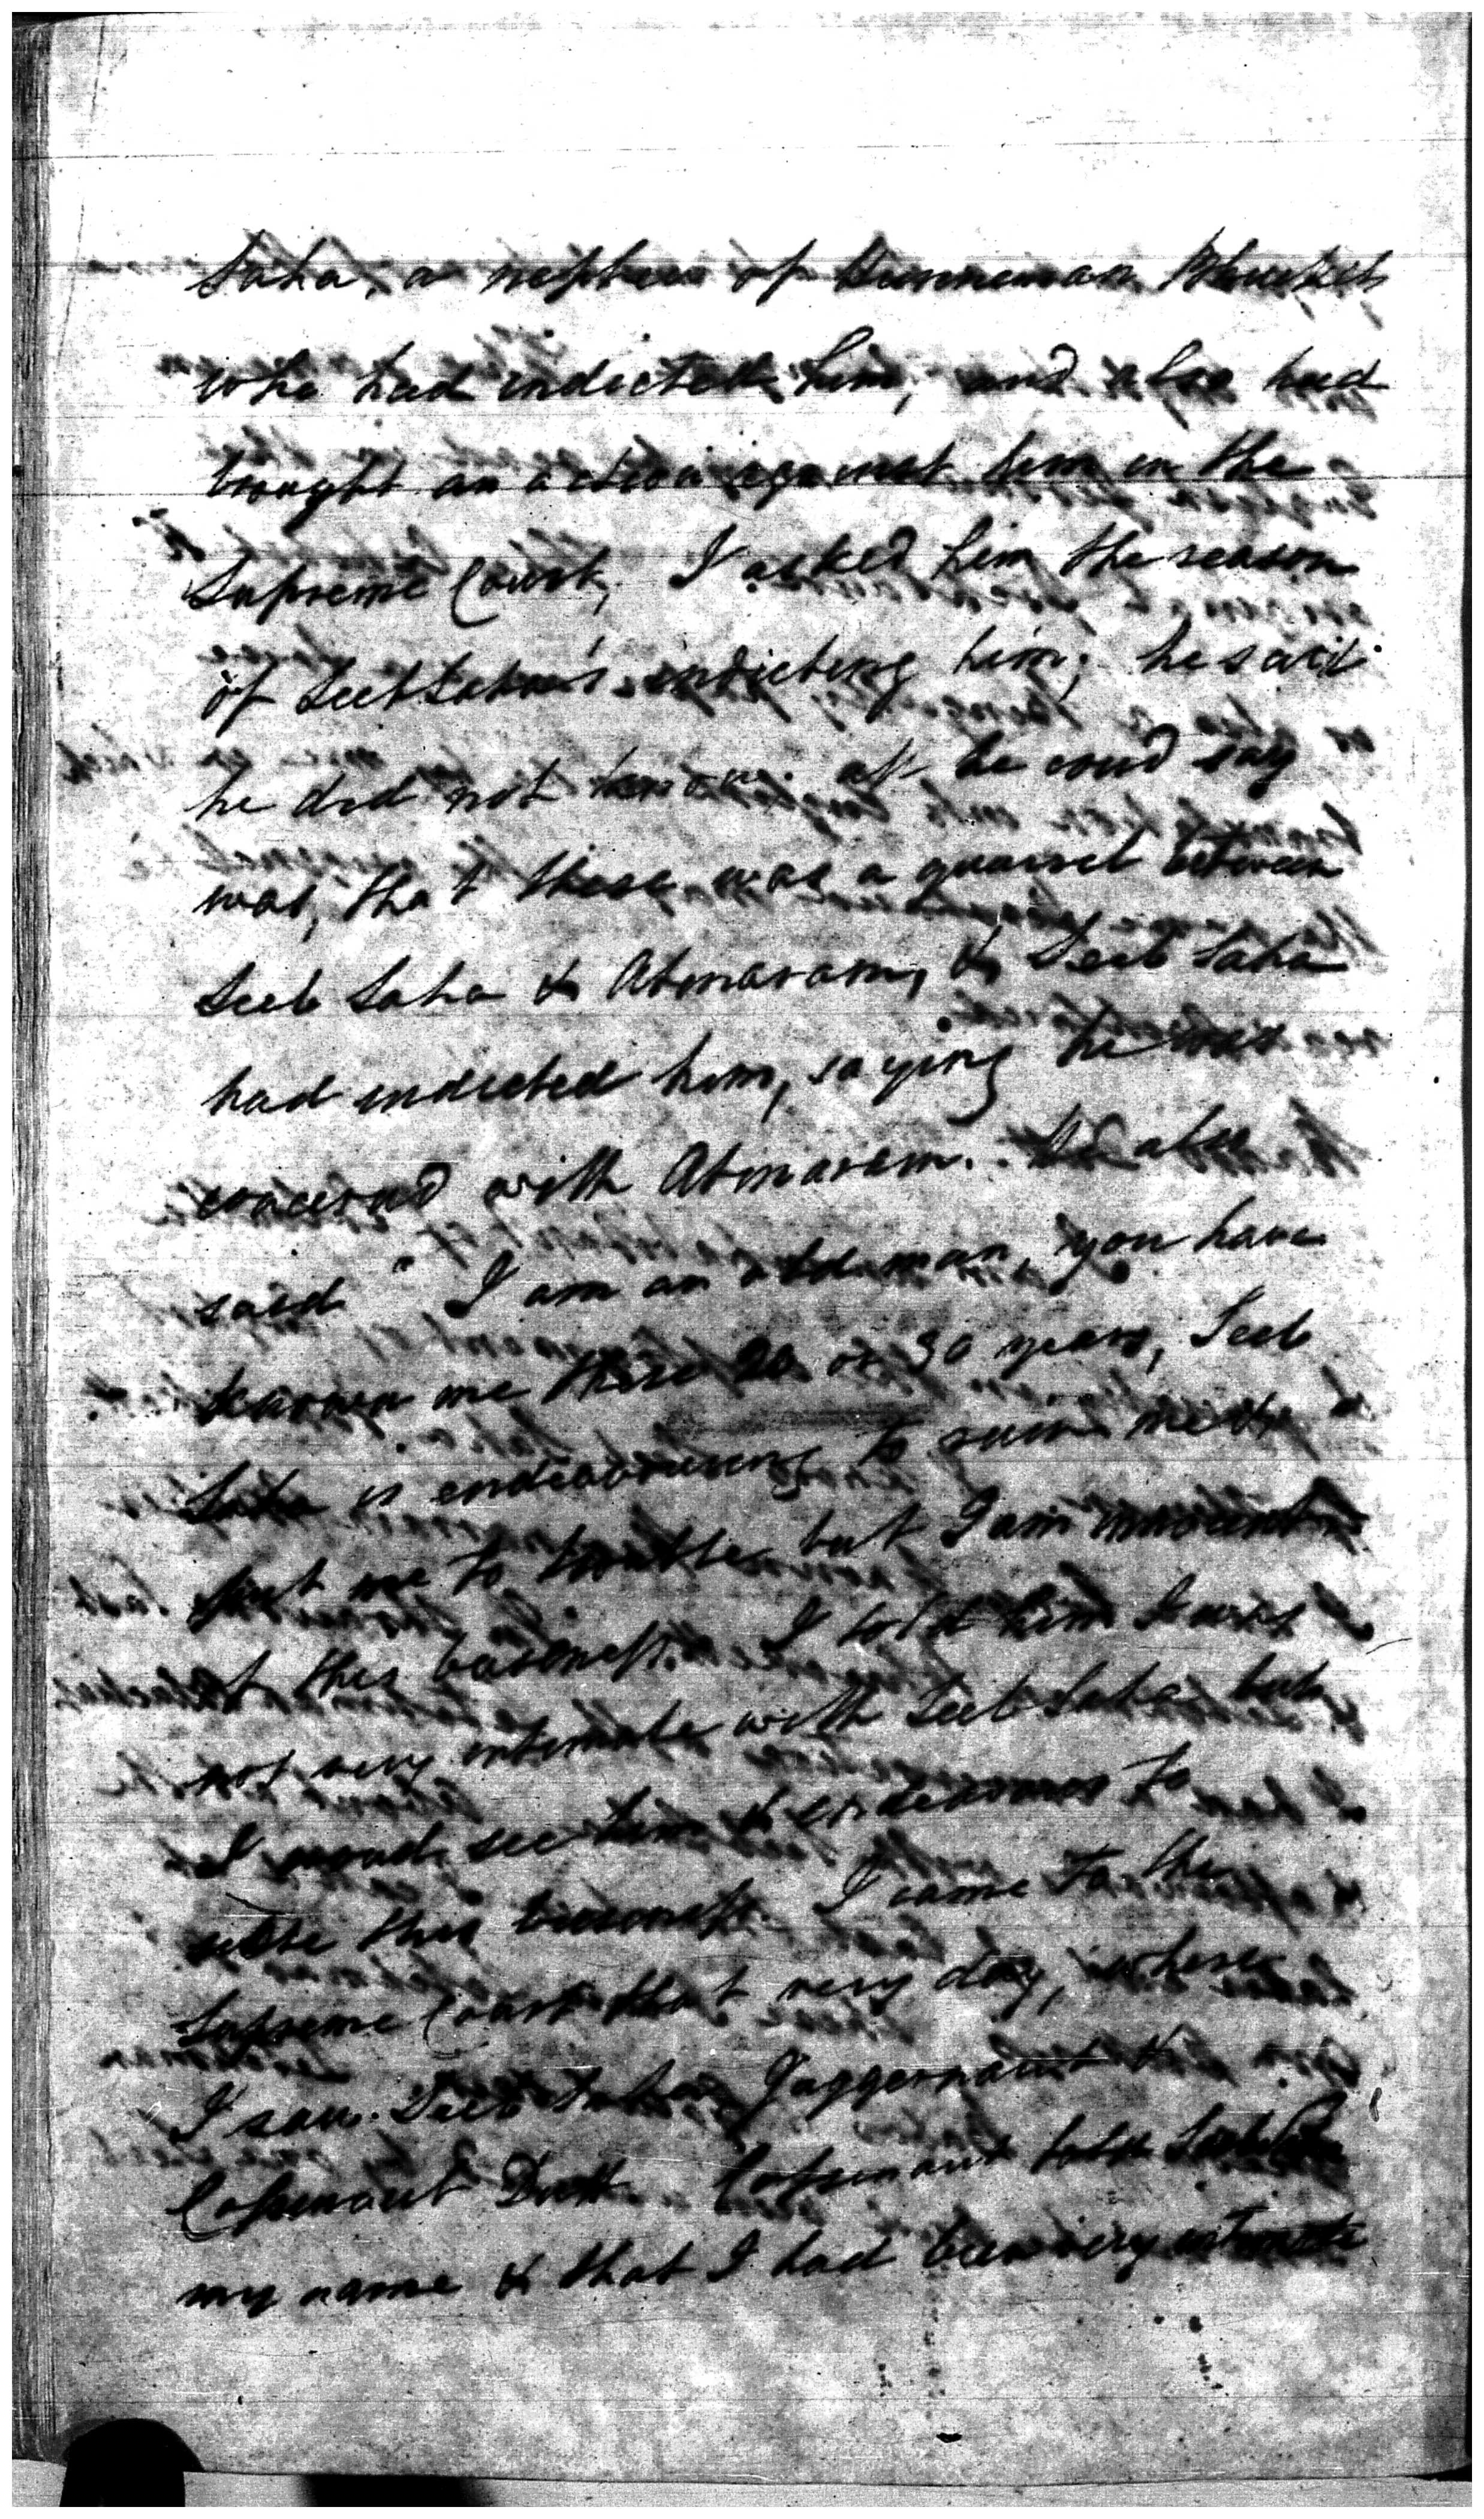 Saha, a nephew of
who had indicted him, and also had
brought an action against him in the
Supreme Court, I asked him the reason
of Seeb Saha's indicting him; he said
he did not know. all he coud say
was, that there was a quarrel between
Seeb Saha & Atmaram, & Seeb Saha
had indicted him, saying he was
concernd with Atmaram. He also
said " I am an old man, you have
known me these 20 or 30 years, Seeb
Saha is endeavouring to ruin me &
put me to trouble but I am innocent
of this business. I told him I was
not very intimate with Seeb Saha but
I woud see him & endeavour to
settle this business. I came to the
Supreme Court that very day, where
I saw Seeb Saha, Juggernaut &
Cossenaut Dutt. Cossenaut told Seeb Saha
my name & that I had been very intimate